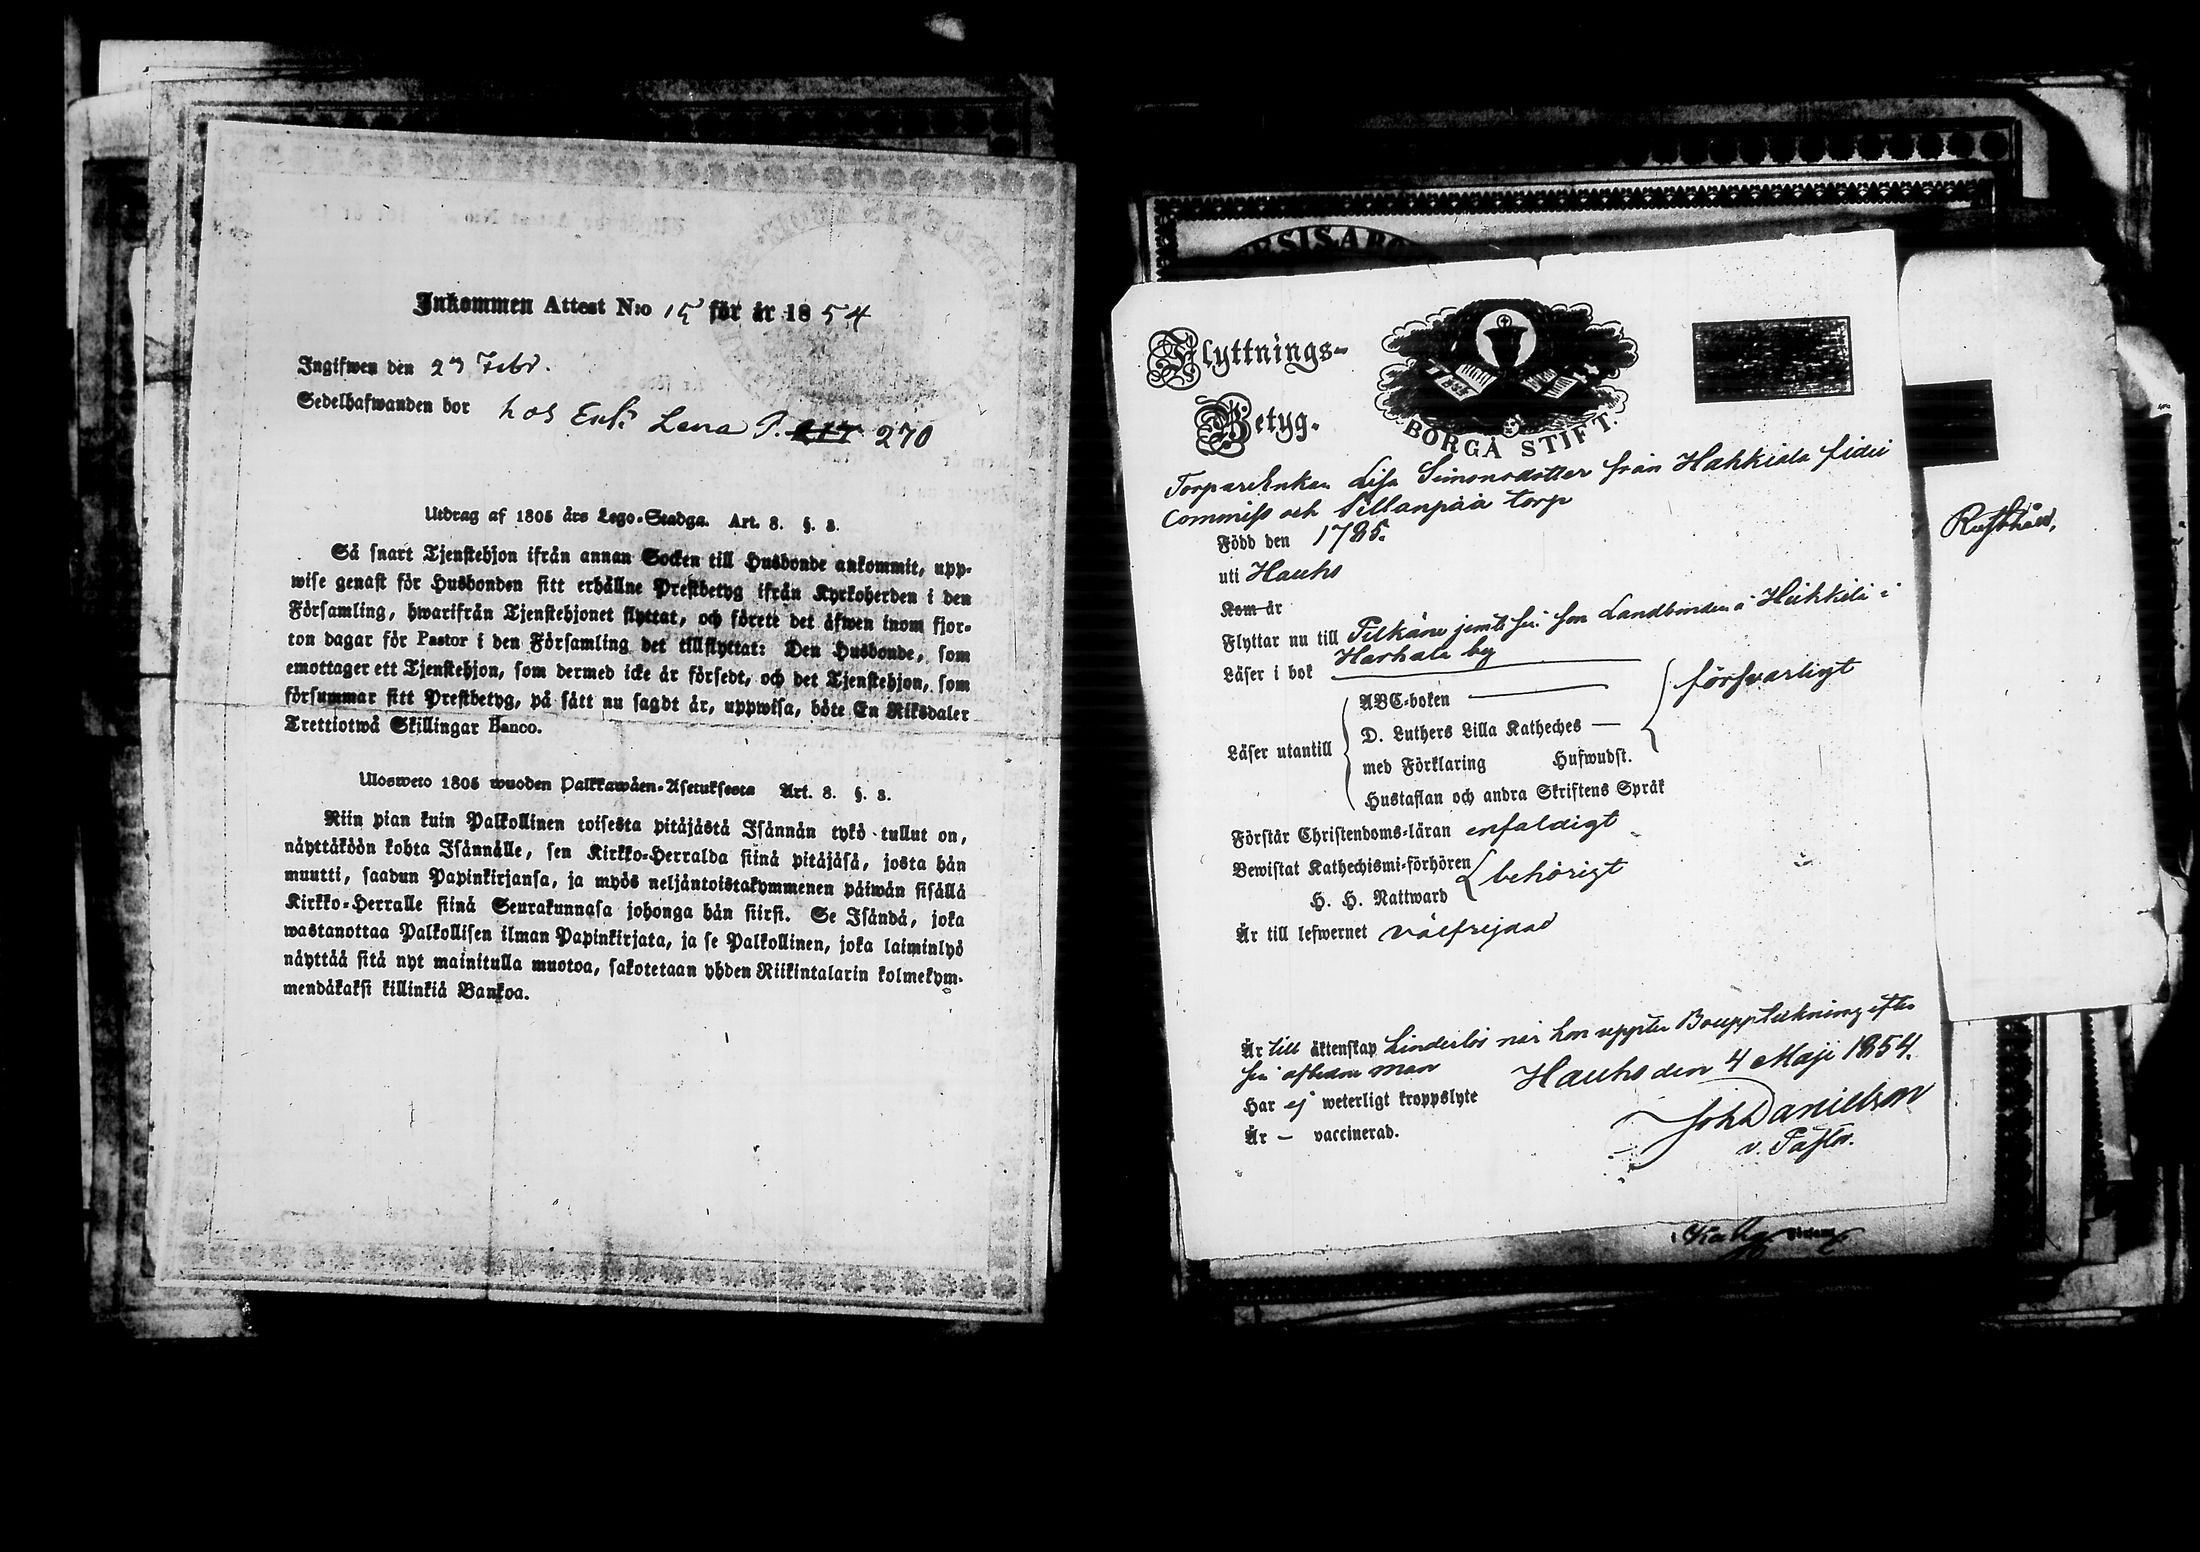 Inkommen Attest N:o 15 för år 1854
Ingifwen den 23 Febr.
Sedelhafwanden bor hos Enk. Lena P. 217 270
Utdrag af 1805 års Lego-Stadga. Art. 8. §. 8.
Så snart Tjenstehjon ifrån annan Socken till Husbonde ankommit, upp-
wise genast för Husbonden sitt erhållne Prestbetyg ifrån Kyrkoherden i den
Församling, hwarifrån Tjenstehjonet flyttat, och förete det äfwen inom fjor-
ton dagar för Pastor i den Församling det tillflyttat: Den Husbonde, som
emottager ett Tjenstehjon, som dermed icke är försedt, och det Tjenstehjon, som
försummar sitt Prestbetyg, på sätt nu sagdt är, uppwisa, böte En Riksdaler
Trettiotwå Skillingar Banco.
Ulosweto 1805 wuoden Palkkawäen-Asetuksesta Art. 8. §. 8.
Niin pian kuin Palkollinen toisesta pitäjästä Isännän tykö tullut on,
näyttäköön kohta Isännälle, sen Kirkko-Herralda siinä pitäjäsä, josta hän
muutti, saadun Papinkirjansa, ja myös neljäntoistakymmenen päiwän sisällä
Kirkko-Herralle siinä Seurakunnasa johonga hän siirsi. Se Isändä, joka
wastanottaa Palkollisen ilman Papinkirjata, ja se Palkollinen, joka laiminlyö
näyttää sitä nyt mainitulla muotoa, sakotetaan yhden Riikintalarin kolmekym-
mendäkaksi killinkiä Bankoa.
Flyttnings-
Betyg.
BORGÅ STIFT.
TorpareEnkan Lisa Simonsdotter från Hahkiala fidei
Commiss och Sillanpää torp
Född den 1785.
uti Hauho
Kom år
Flyttar nu till Pelkäne jemte sin son Landbonden å Heikkilä i
Harhala by
Läser i bok
Läser utantill
ABC-boken
D. Luthers Lilla Katheches
med Förklaring Hufwudst.
Hustaflan och andra Skriftens Språk
försvarligt
Förstår Christendoms-läran enfaldigt
Bewistat Kathechismi-förhören
H. H. Nattward
behörigt
Är till lefwernet välfrejdad
Är till äktenskap hinderlös när hon uppter Bouppteckning efter
sin aflidne man
Hauho den 4 Maji 1854.
Har ej weterligt kroppslyte
Är — vaccinerad.
Joh Danielson
v. Pastor.
Rusthåll,